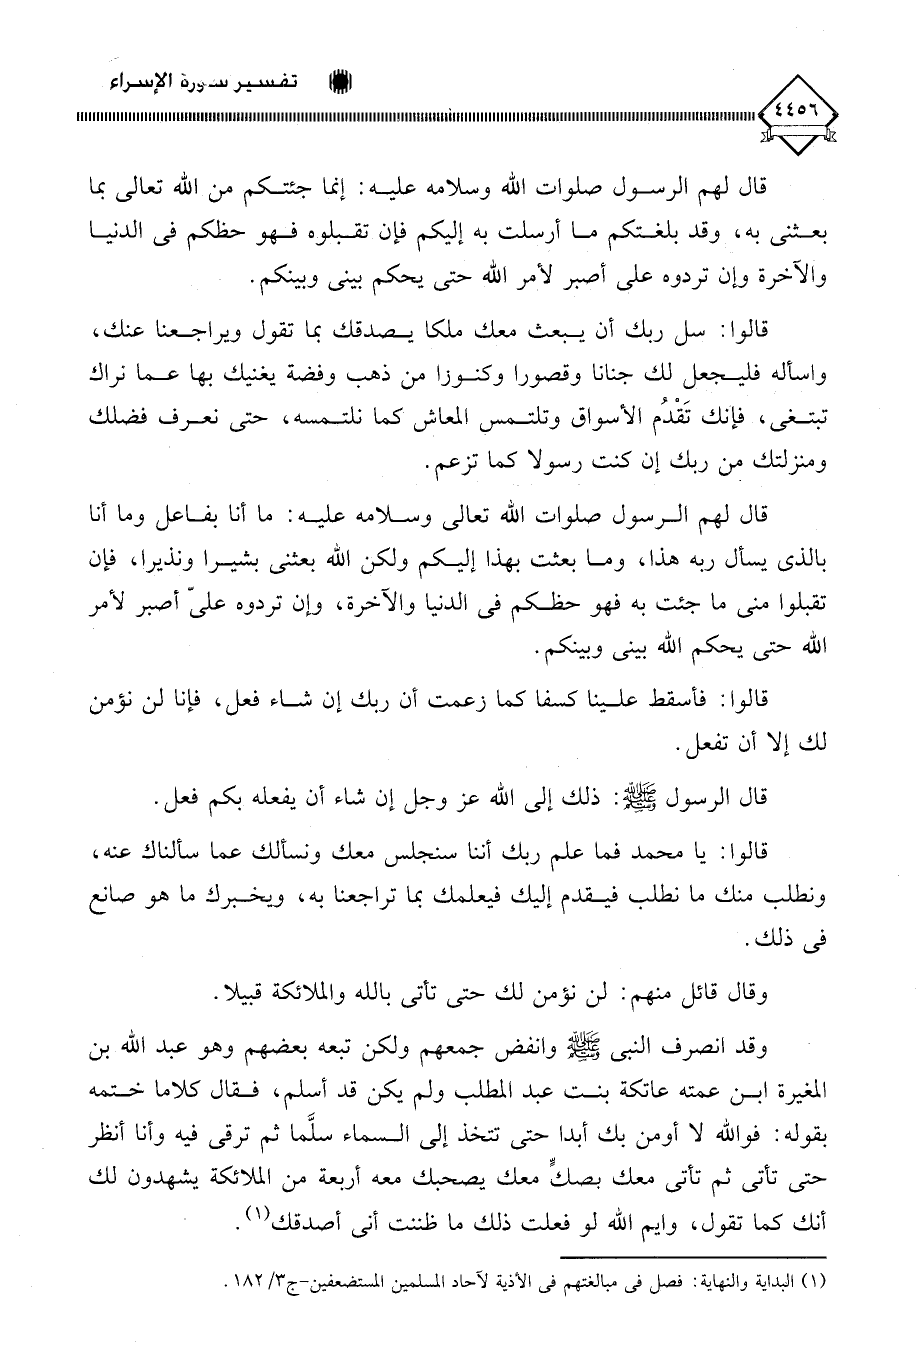 تفسير سورة الإسراء
٤٤٥٦
قال لهم الرسول صلوات الله وسلامه عليه: إنما جئتكم من الله تعالى بما
بعثنى به، وقد بلغتكم ما أرسلت به إليكم فإن تقبلوه فهو حظكم فى الدنيا
والآخرة وإن تردوه على أصبر لأمر الله حتى يحكم بينى وبينكم.
قالوا: سل ربك أن يبعث معك ملكا يصدقك بما تقول ويراجعنا عنك،
واسأله فليجعل لك جنانا وقصورا وكنوزا من ذهب وفضة يغنيك بها عما نراك
تبتغى، فإنك تَقْدُم الأسواق وتلتمس المعاش كما نلتمسه، حتى نعرف فضلك
ومنزلتك من ربك إن كنت رسولا كما تزعم.
قال لهم الرسول صلوات الله تعالى وسلامه عليه: ما أنا بفاعل وما أنا
بالذى يسأل ربه هذا، وما بعثت بهذا إليكم ولكن الله بعثنى بشيرا ونذيرا، فإن
تقبلوا منى ما جئت به فهو حظكم فى الدنيا والآخرة، وإن تردوه علىّ أصبر لأمر
الله حتى يحكم الله بينى وبينكم.
قالوا: فأسقط علينا كسفا كما زعمت أن ربك إن شاء فعل، فإنا لن نؤمن
لك إلا أن تفعل.
قال الرسول ﷺ: ذلك إلى الله عز وجل إن شاء أن يفعله بكم فعل.
قالوا: يا محمد فما علم ربك أننا سنجلس معك ونسألك عما سألناك عنه،
ونطلب منك ما نطلب فيقدم إليك فيعلمك بما تراجعنا به، ويخبرك ما هو صانع
فى ذلك.
وقال قائل منهم: لن نؤمن لك حتى تأتى بالله والملائكة قبيلا.
وقد انصرف النبى ﷺ وانفض جمعهم ولكن تبعه بعضهم وهو عبد الله بن
المغيرة ابن عمته عاتكة بنت عبد المطلب ولم يكن قد أسلم، فقال كلاما ختمه
بقوله: فوالله لا أومن بك أبدا حتى تتخذ إلى السماء سلَّما ثم ترقى فيه وأنا أنظر
حتى تأتى ثم تأتى معك بصكٍّ معك يصحبك معه أربعة من الملائكة يشهدون لك
أنك كما تقول، وايم الله لو فعلت ذلك ما ظننت أنى أصدقك(١).
(١) البداية والنهاية: فصل فى مبالغتهم فى الأذية لآحاد المسلمين المستضعفين-ج٣/ ١٨٢.